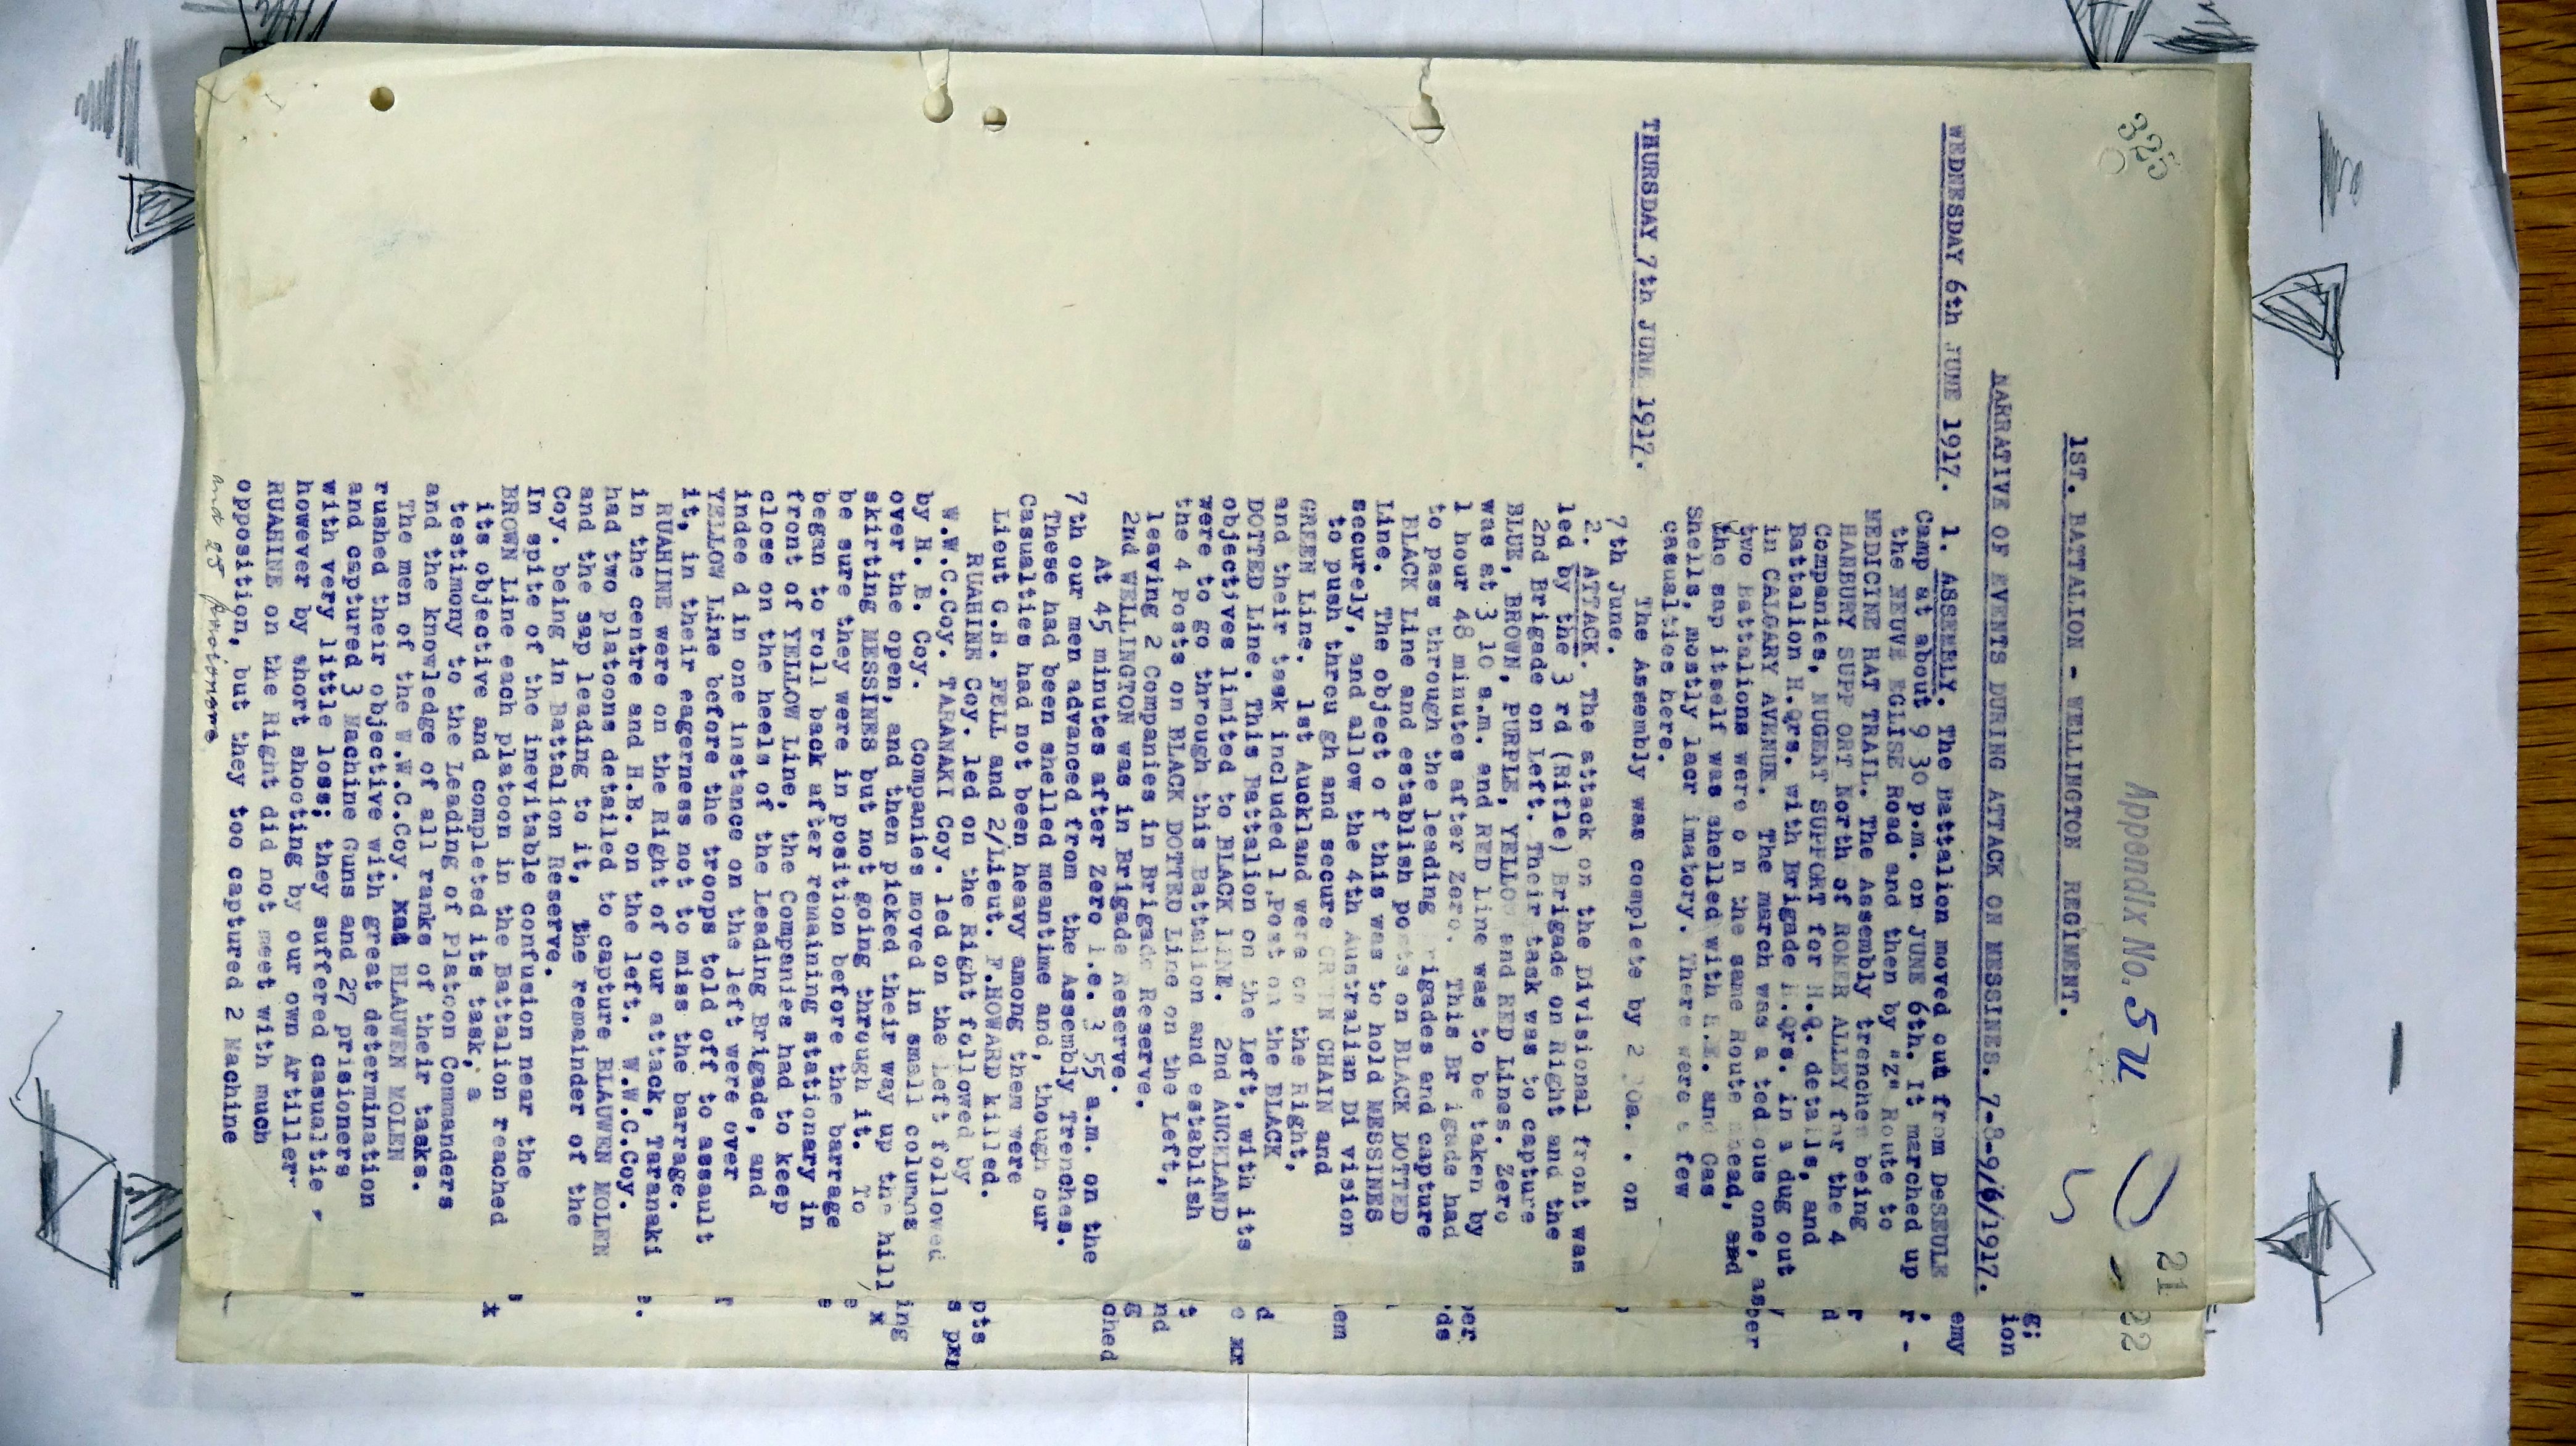 325
Appendix No. 5U
21
22
1ST. BATTALION - WELLINGTON REGIMENT.
NARRATIVE OF EVENTS DURING ATTACK ON MESSINES. 7-8-9/6/1917.
WEDNESDAY 6th JUNE 1917. 1. ASSEMBLY. The Battalion moved out from DeSEULE
Camp at about 9 30 p.m. on JUNE 6th. It marched up
the NEUVE EGLISE Road and then by "Z" Route to
MEDICINE HAT TRAIL. The Assembly trenches being
HANBURY SUPP ORT North of ROKER ALLEY for the 4
Companies, NUGEAT SUPPORT for H.Q. details, and
Battalion H.Qrs. with Brigade H.Qrs. in a dug out
in CALGARY AVENUE. The march was a ted ous one, as
two Battalions were o n the same Route ahead, and
the sap itself was shelled with H.E. and Gas
Shells, mostly lacr imatory. There were a few
casualties here.
THURSDAY 7th JUNE 1917. The Assembly was complete by 2 a. . on
7th June.
2. ATTACK. The attack on the Divisional front was
led by the 3 rd (Rifle) Brigade on Right and the
2nd Brigade on Left. Their task was to capture
BLUE, BROWN, PURPLE, YELLOW and RED Lines. Zero
was at 3 10 a.m. and RED Line was to be taken by
1 hour 48 minutes after Zero. This Br igade had
to pass through the leading rigades and capture
BLACK Line and establish posts on BLACK DOTTED
Line. The object o f this was to hold MESSINES
securely, and allow the 4th Australian Di vision
to push throu gh and secure GREEN CHAIN and
GREEN Line. 1st Auckland were on the Right,
and their task included 1 Post on the BLACK
DOTTED Line. This Battalion on the Left, with its
objectives limited to BLACK LINE. 2nd AUCKLAND
were to go through this Battalion and establish
the 4 Posts on BLACK DOTTED Line on the Left,
leaving 2 Companies in Brigade Reserve.
2nd WELLINGTON was in Brigade Reserve.
At 45 minutes after Zero i.e. 3 55 a.m. on the
7th our men advanced from the Assembly Trenches.
These had been shelled meantime and, though our
Casualties had not been heavy among them were
Lieut G.H. FELL and 2/Lieut. F.HOWARD killed.
RUAHINE Coy. led on the Right followed by
W.W.C.Coy. TARANAKI Coy. led on the Left followed
by H. B. Coy. Companies moved in small columns
over the open, and then picked their way up the hill
skirting MESSINES but not going through it. To
be sure they were in position before the barrage
began to roll back after remaining stationary in
front of YELLOW Line, the Companies had to keep
close on the heels of the Leading Brigade, and
indee d in one instance on the left were over
YELLOW Line before the troops told off to assault
it, in their eagerness not to miss the barrage.
RUAHINE were on the Right of our attack, Taranaki
in the centre and H.B. on the left. W.W.C.Coy.
had two platoons detailed to capture BLAUWEN MOLEN
and the sap leading to it, The remainder of the
Coy. being in Battalion Reserve.
In spite of the inevitable confusion near the
BROWN Line each platoon in the Battalion reached
its objective and completed its task, a
testimony to the Leading of Platoon Commanders
and the knowledge of all ranks of their tasks.
The men of the W.W.C.Coy. BLAUWEN MOLEN
rushed their objective with great determination
and captured 3 Machine Guns and 27 prisioners
with very little loss; they suffered casualtie
however by short shooting by our own Artiller
RUAHINE on the Right did not meet with much
opposition, but they too captured 2 Machine
and 25 prisioners